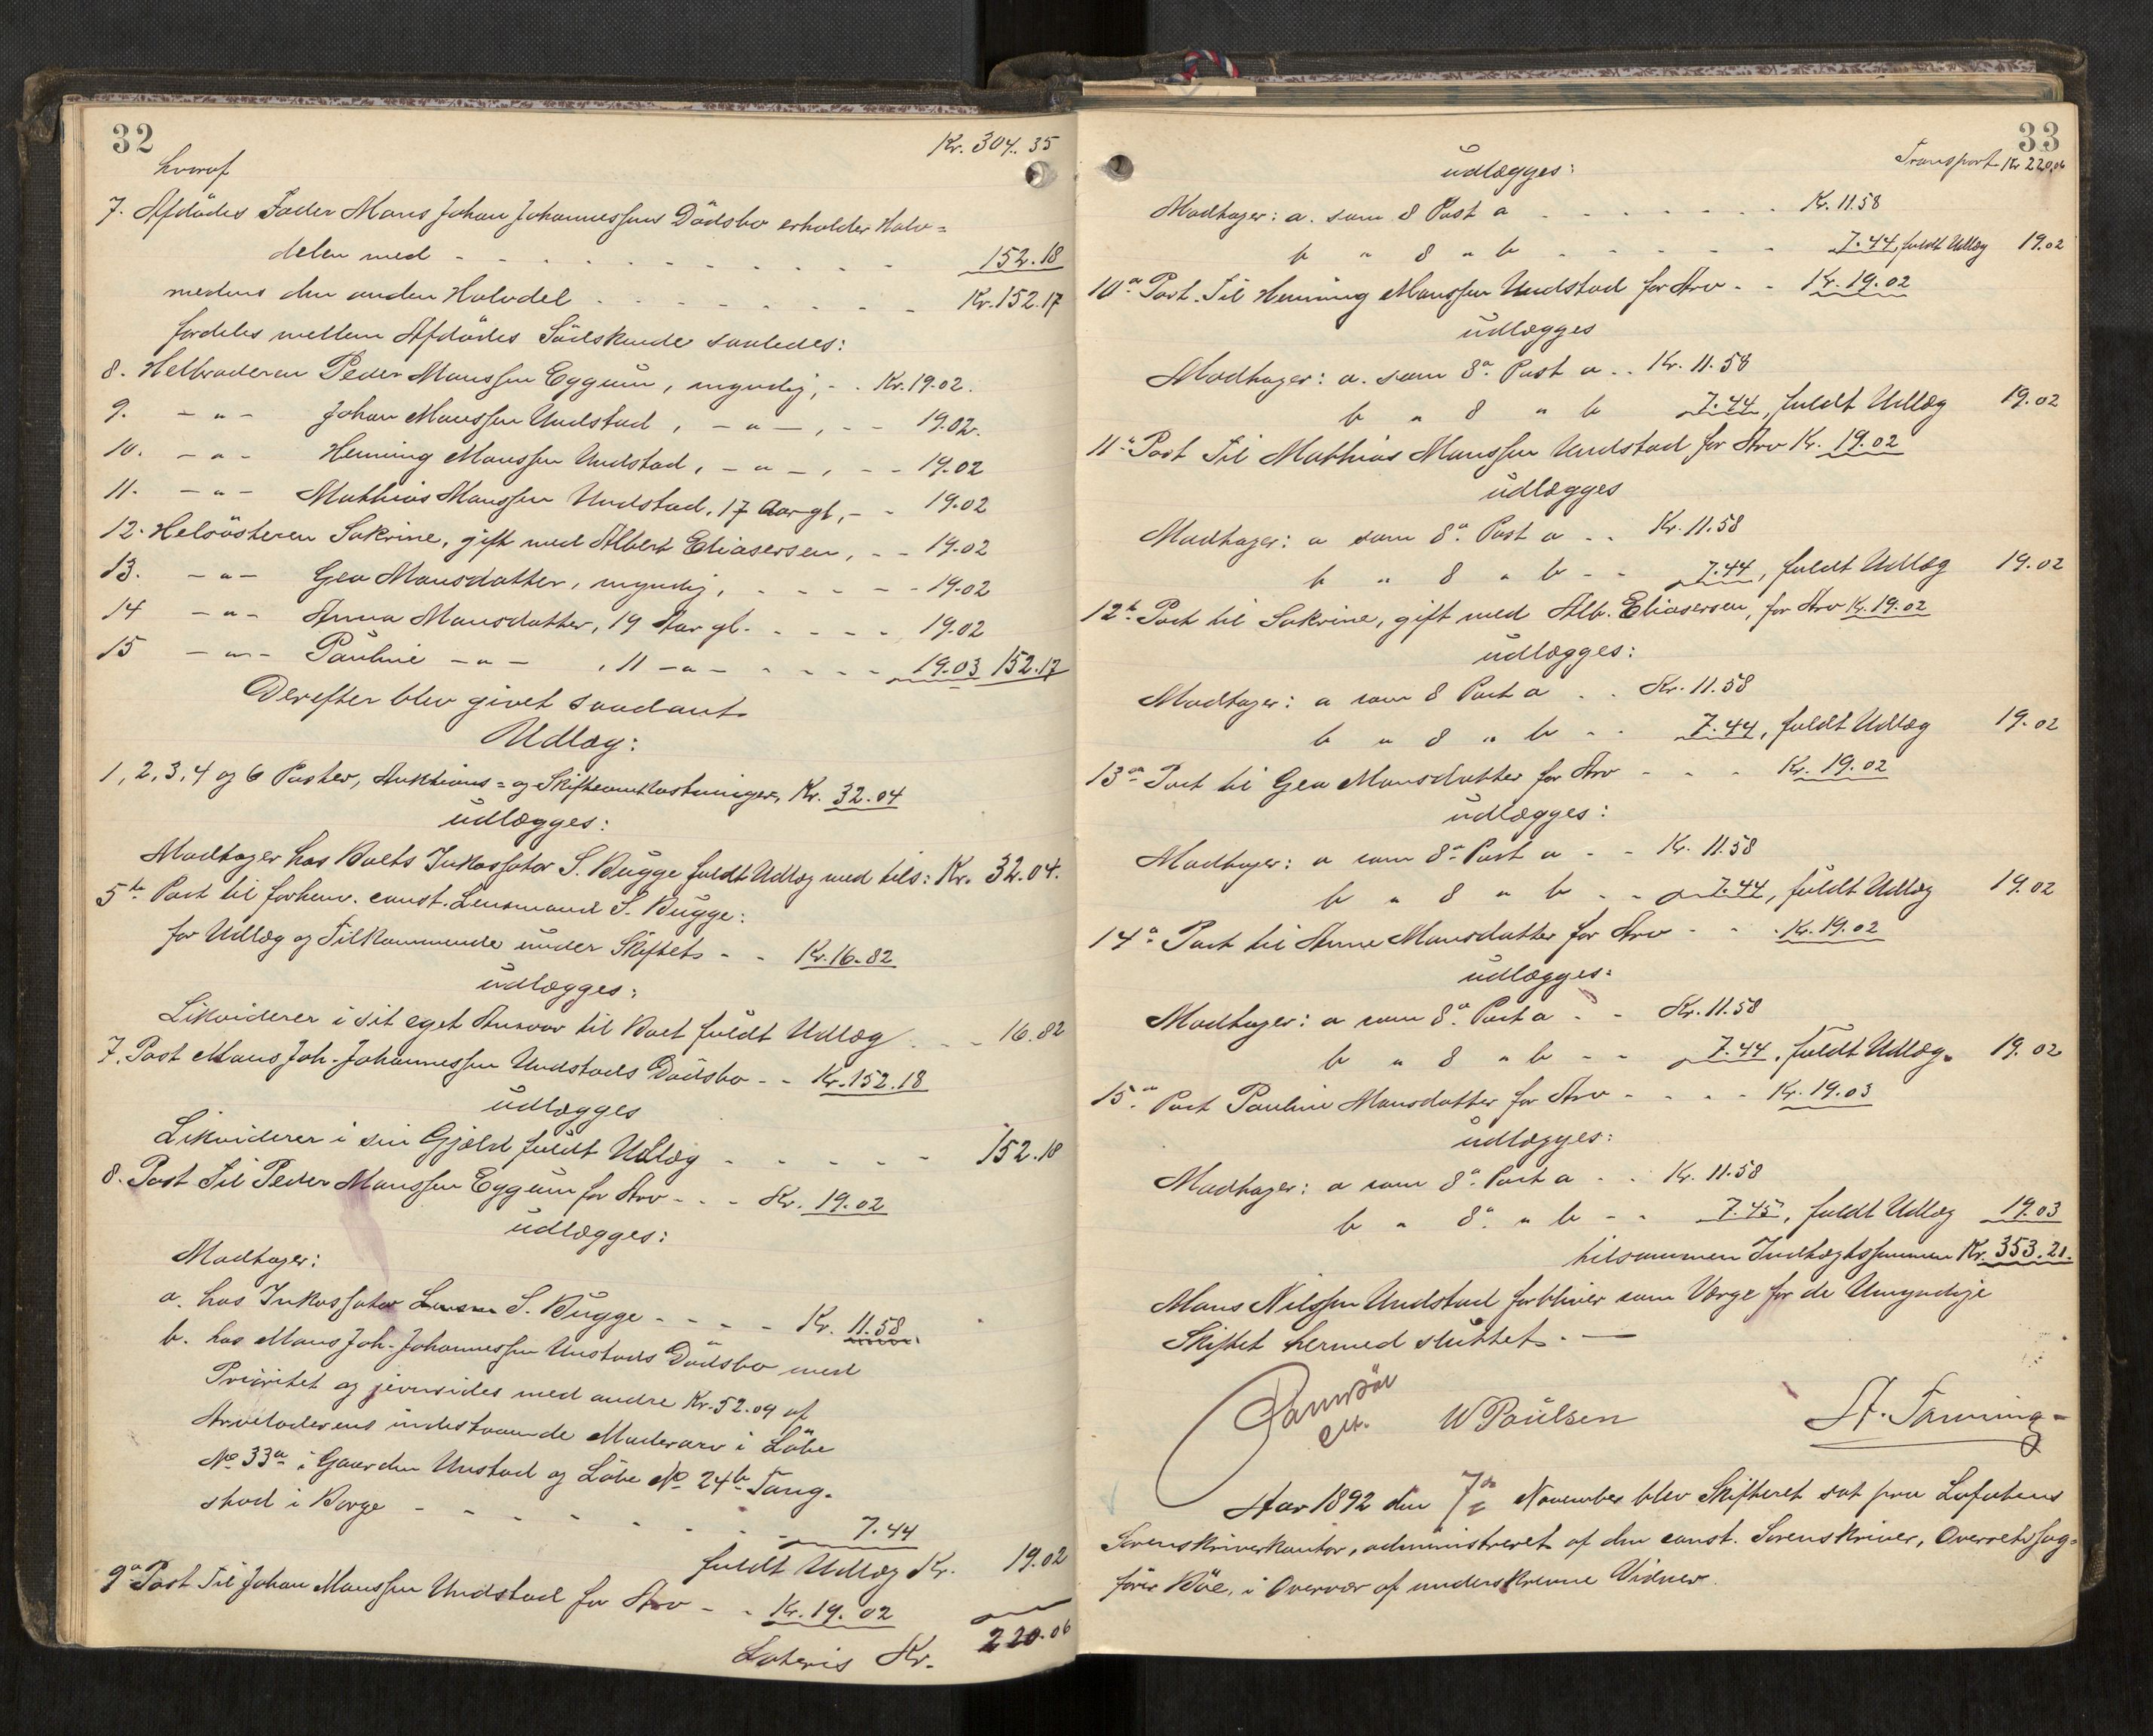 32
Kr. 304.35
hvoraf
7. Afdødes Fader Mons Johan Johannessens Dødsbo erholder Halv=
delen med - - - - 152.18
medens den anden Halvdel - - - - Kr. 152.17
fordeles mellem Afdødes Södskende saaledes:
8. Helbroderen Peder Monssen Eggum, myndig, - - Kr. 19.02.
9. - " - Johan Monssen Undstad, - " - , - - 19.02.
10. - " - Henning Monssen Undstad, - " - , - - 19.02
11. - " - Mathias Monssen Undstad, 17 Aar gl, - - 19.02
12. Helsösteren Sakrine, gift med Albert Eliasersen, - - 19.02
13. - " - Gea Monsdatter, myndig, - - - - 19.02
14 - " - Anna Monsdatter, 19 Aar gl. - - - - 19.02
15 - " - Pauline - " - , 11 - " - - - - - 19.03 152.17
Derefter blev givet saadant
Udlæg:
1, 2, 3, 4 og 6 Poster, Auktions= og Skifteomkostninger, Kr. 32.04
udlægges:
Modtager hos Boets Inkassator S. Bugge fuldt Udlæg med tils: Kr. 32.04.
5te Post til forhenv. const. Lensmand S. Bugge:
for Udlæg og Tilkommende under Skiftet - - Kr. 16.82
udlægges:
Likviderer i sit eget Ansvar til Boet fuldt Udlæg - - - 16.82
7. Post Mons Joh. Johannessen Undstads Dödsbo - - Kr. 152.18
udlægges
Likviderer i sin Gjæld fuldt Udlæg - - - - - 152.18
8. Post Til Peder Monssen Eggum for Arv - - - Kr. 19.02
udlægges:
Modtager:
a. hos Inkassator Lensm S. Bugge - - - - Kr. 11.58
b. hos Mons Joh. Johannessen Unstads Dödsbo med
Prioritet og jevnsides med andre Kr. 52.09 af
Arveladerens indestaaende Moderarv i Löbe
No 33a i Gaarden Unstad og Löbe No 24b Tang-
stad i Borge - - - - - - 7.44
fuldt Udlæg Kr. 19.02
9a Post Til Johan Monssen Undstad for Arv - - Kr. 19.02
Lateris Kr. 220.06
33
Transport Kr 220.06
udlægges:
Modtager: a. som 8 Post a - - - - - - Kr. 11.58
b " 8 " b - - - - - 7.44, fuldt Udlæg 19.02
10a Post. Til Henning Monssen Undstad for Arv - - Kr. 19.02
udlægges
Modtager: a. som 8a Post a . . Kr. 11.58
b " 8 " b 7.44, fuldt Udlæg 19.02
11a Post Til Mathias Monssen Undstad for Arv Kr. 19.02
udlægges
Modtager: a som 8a Post a . . Kr. 11.58
b " 8 " b - - 7.44, fuldt Udlæg 19.02
12te Post til Sakrine, gift med Alb. Eliasersen, for Arv Kr. 19.02
udlægges:
Modtager: a som 8 Post a . . Kr. 11.58
b " 8 " b - - 7.44, fuldt Udlæg 19.02
13a Post til Gea Monsdatter for Arv - - - Kr. 19.02
udlægges:
Modtager: a som 8a Post a - - Kr. 11.58
b " 8 " b - - 7.44, fuldt Udlæg 19.02
14a Post til Anne Monsdatter for Arv - - . Kr. 19.02
udlægges:
Modtager: a som 8a Post a - - Kr. 11.58
b " 8 " b - - 7.44, fuldt Udlæg. 19.02
15a Post Pauline Monsdatter for Arv - - - - Kr. 19.03
udlægges:
Modtager: a som 8a Post a - - Kr. 11.58
b " 8a " b - - 7.45, fuldt Udlæg 19.03
tilsammen Indtægtssummen Kr. 353.21.
Mons Nilssen Undstad forbliver som Værge for de Umyndige
Skiftet hermed sluttet. -
W Paulsen
A. Tanning
Aar 1892 den 7de November blev Skifteret sat paa Lofotens
Sorenskriverkontor, administreret af den const. Sorenskriver, Overretssag=
förer Böe, i Overvær af underskrevne Vidner.